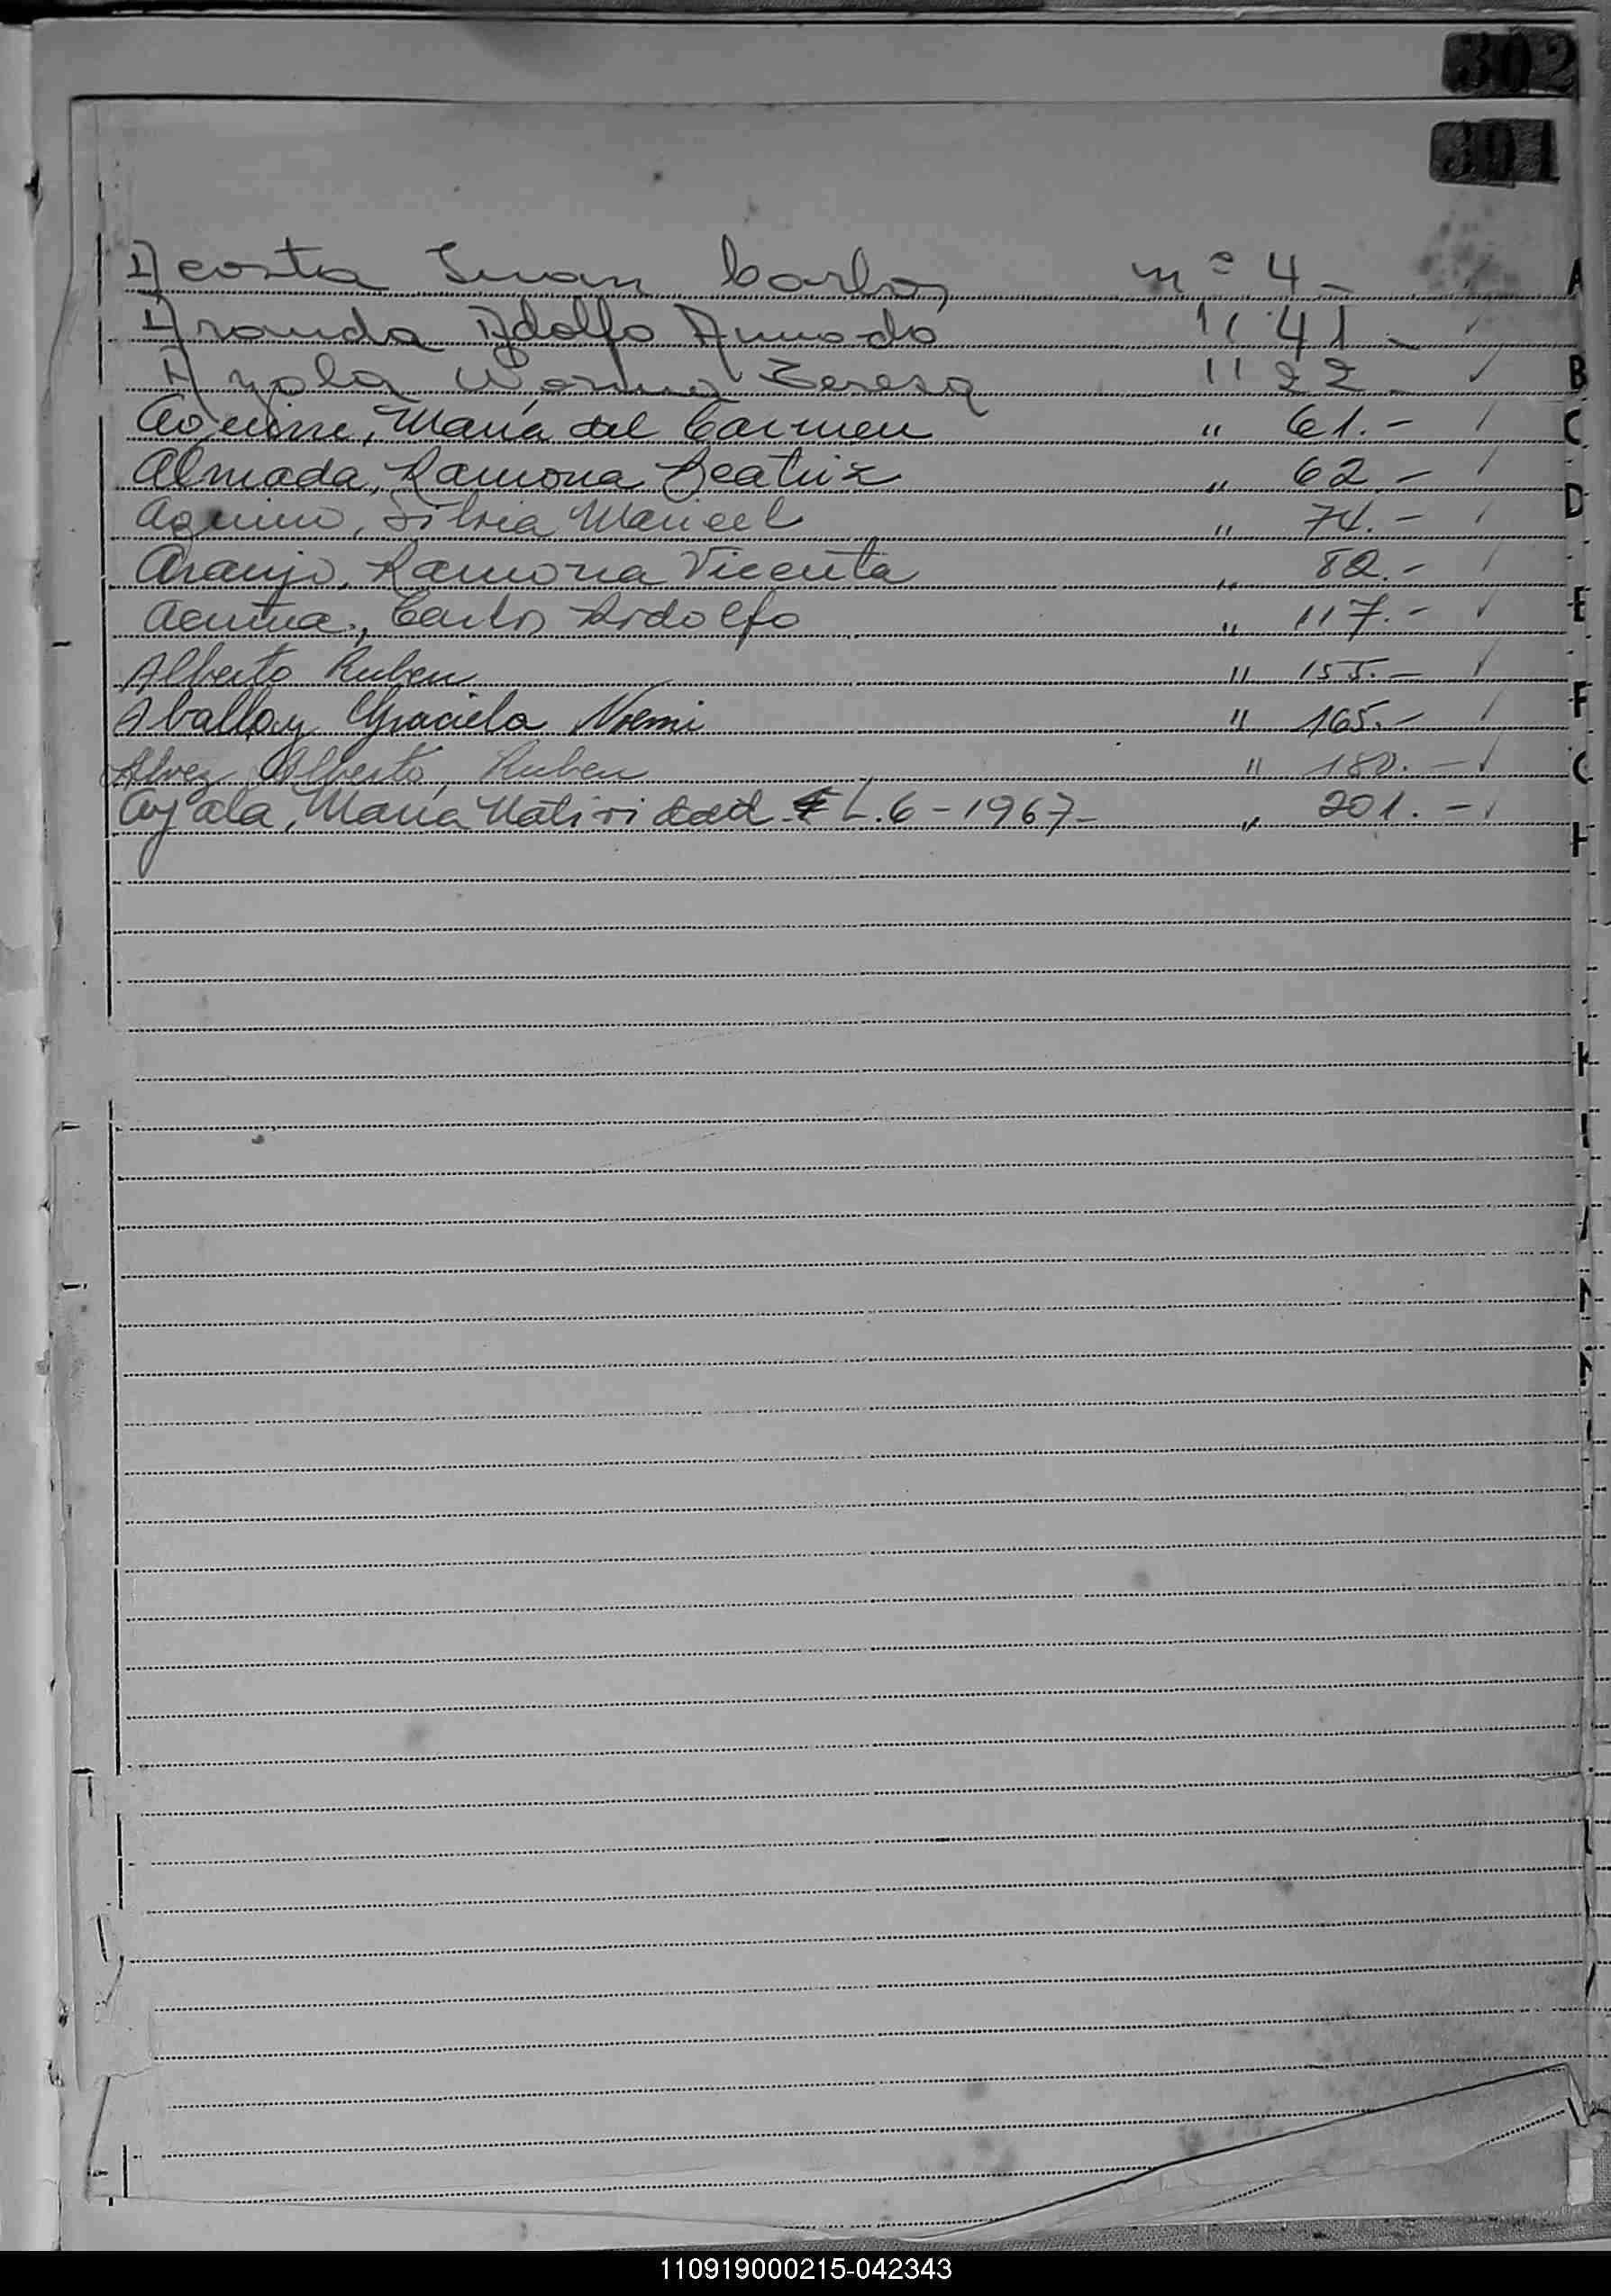 302
301
Acosta Juan Carlos nº 4.-
Aranda Adolfo Amado " 41.- ✓
Ayala Norma Teresa " 22.- ✓
Aguirre, María del Carmen " 61.- ✓
Almada, Ramona Beatriz " 62.- ✓
Aquino, Silvia Maricel " 74.- ✓
Araujo, Ramona Vicenta " 82.- ✓
Acuña, Carlos Rodolfo " 117.- ✓
Alberto Ruben " 155.- ✓
Aballay Graciela Noemi " 165.- ✓
Alvez Alberto, Ruben " 180.- ✓
Ayala, María Natividad L.6-1967- " 201.- ✓
A
B
C
D
E
F
G
H
K
110919000215-042343